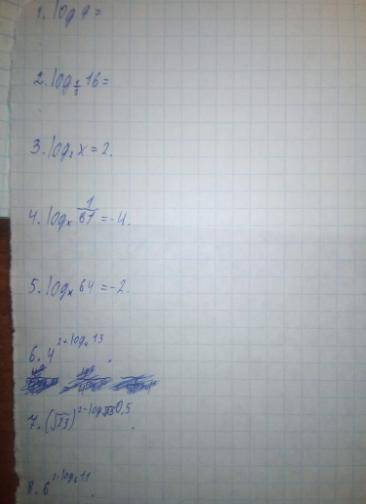 1. log 9 =
2. log 16 =
3. log₂ x = 2.
4. logₓ 1/81 = -4.
5. logₓ 64 = -2.
6. 4^(2+log₄ 13).
7. (√13)^(2-log√13 0,5).
8. 6^(2-log₆ 11).